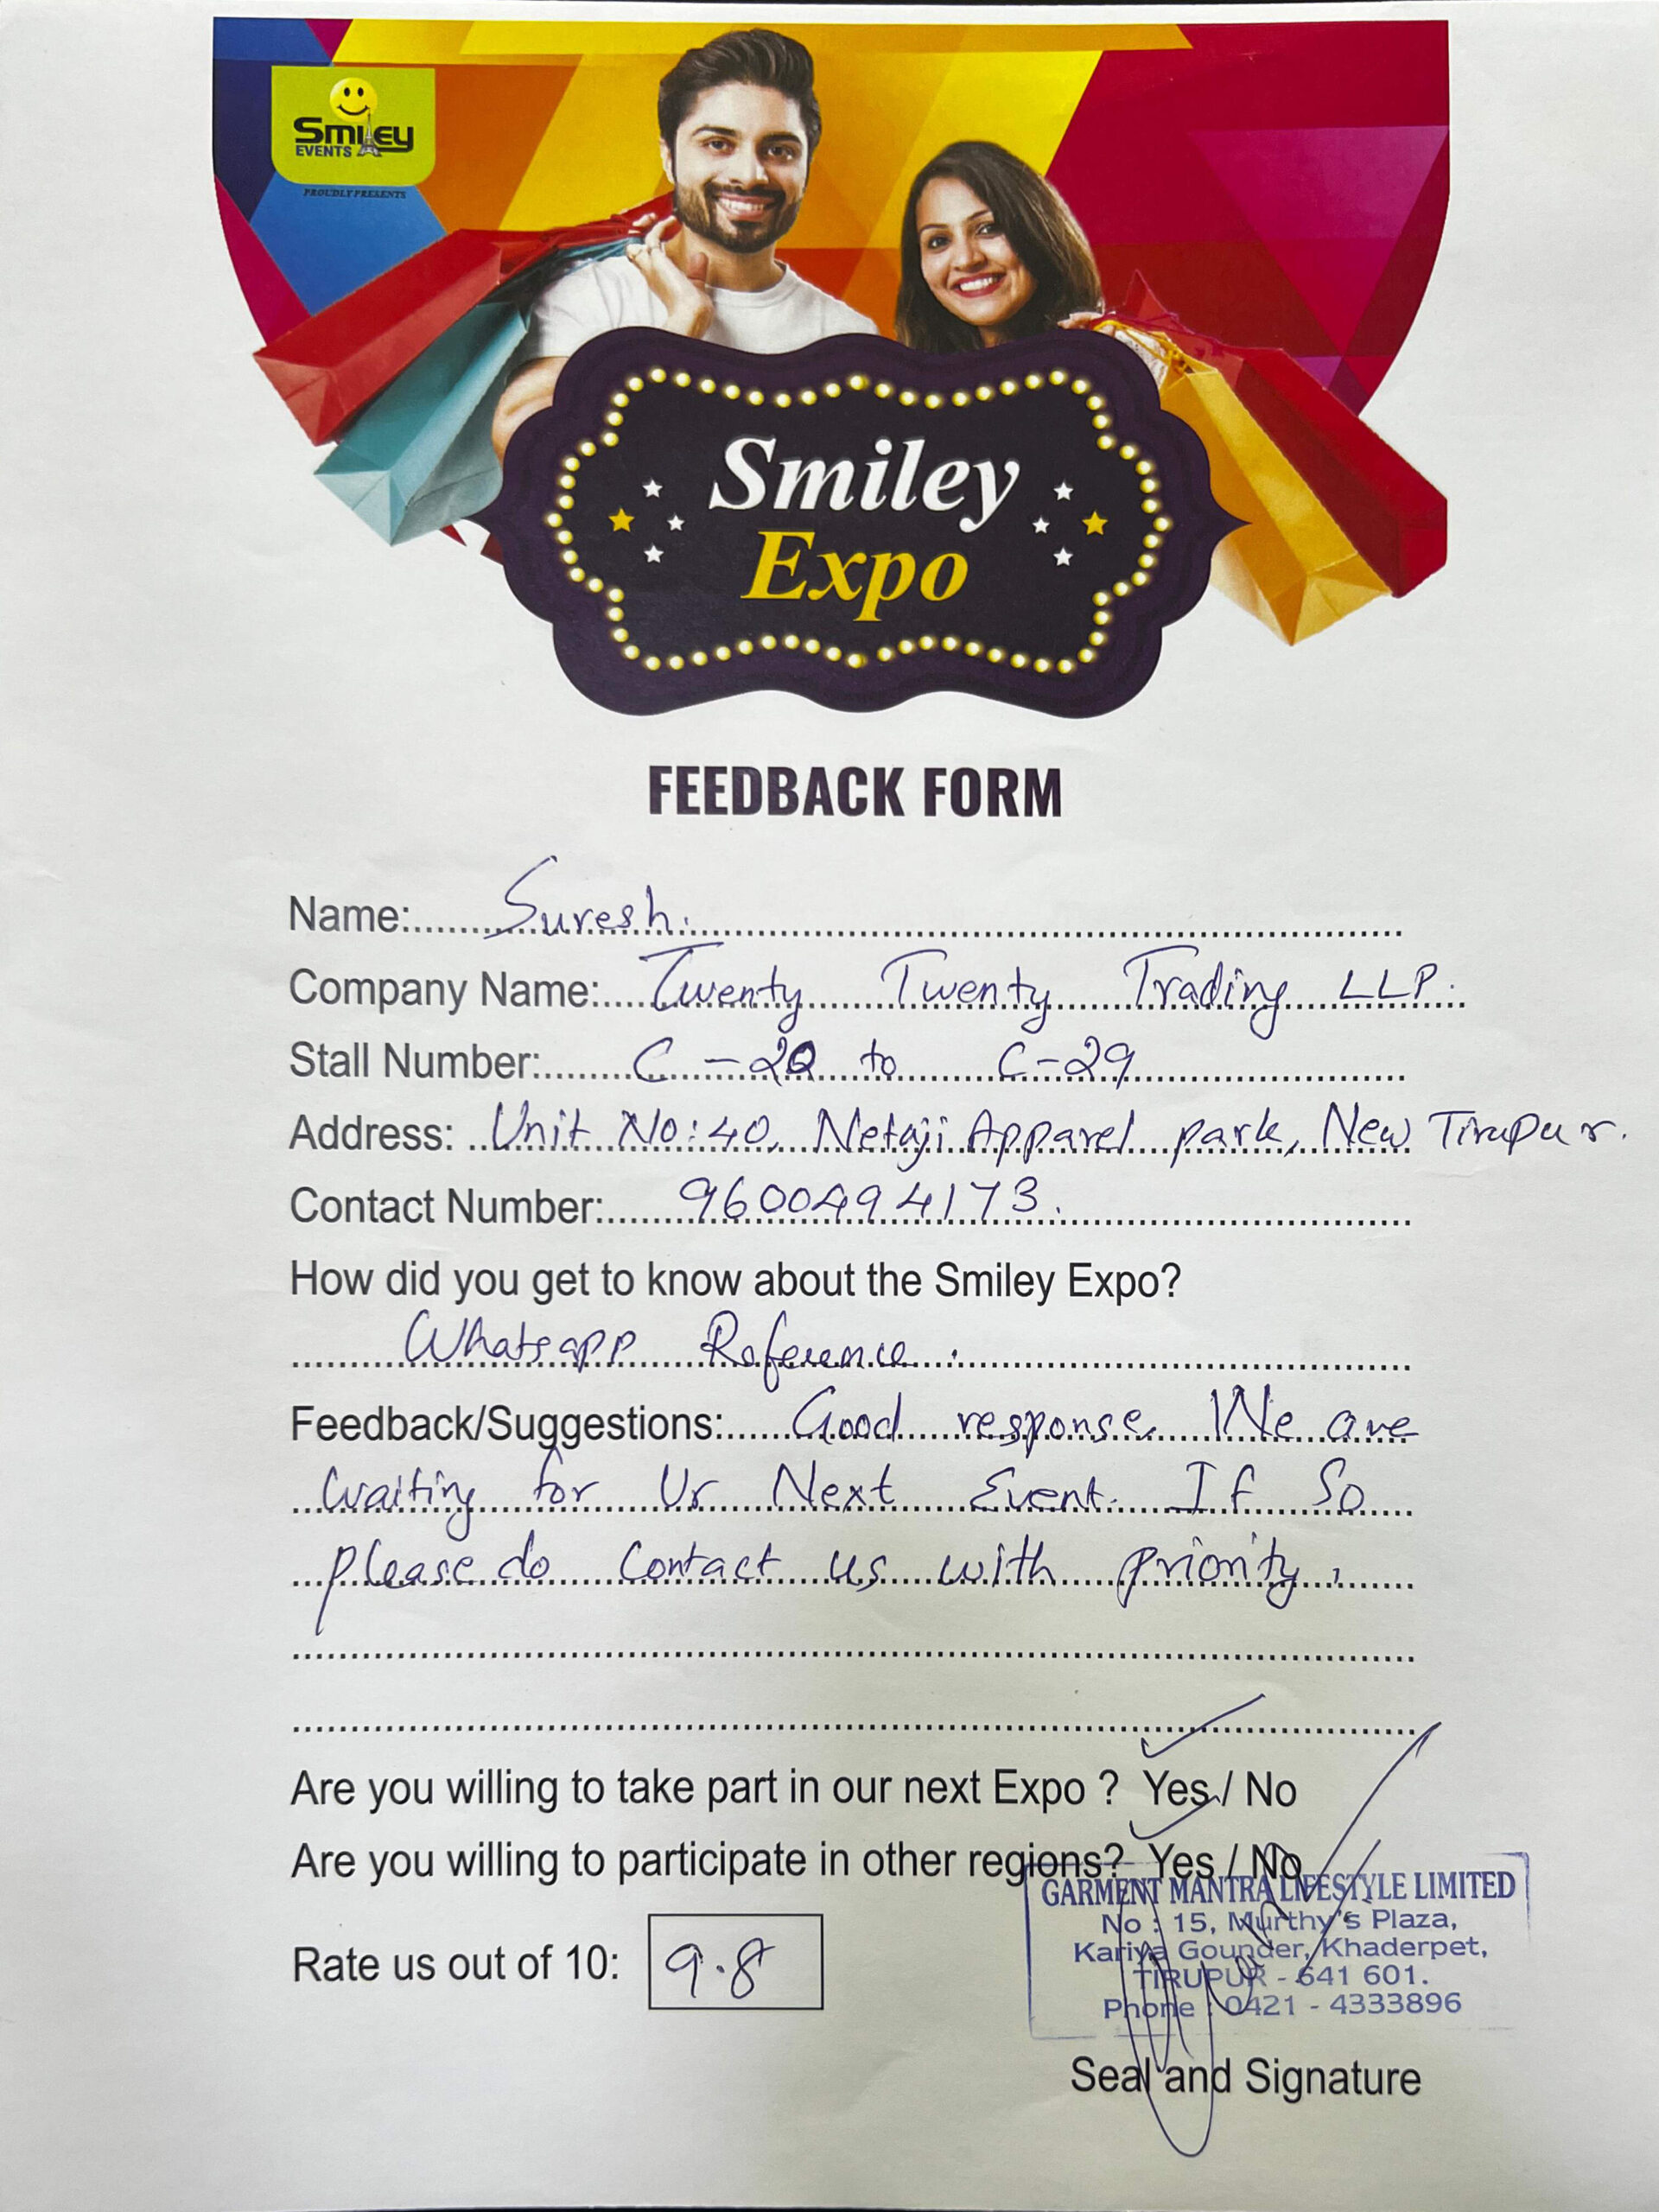 Smiley
EVENTS
PROUDLY PRESENTS
Smiley
Expo
FEEDBACK FORM
Name: Suresh.
Company Name: Twenty Twenty Trading LLP.
Stall Number: C-20 to C-29
Address: Unit No:40, Netaji Apparel park, New Tirupur.
Contact Number: 9600494173.
How did you get to know about the Smiley Expo?
Whatsapp Reference.
Feedback/Suggestions: Good response, We are
waiting for Ur Next Event. If So
please do Contact us with priority,
Are you willing to take part in our next Expo ? Yes / No
Are you willing to participate in other regions? Yes / No
GARMENT MANTRA LIFESTYLE LIMITED
No : 15, Murthy's Plaza,
Kariya Gounder, Khaderpet,
TIRUPUR - 641 601.
Phone : 0421 - 4333896
Rate us out of 10: 9.8
Seal and Signature